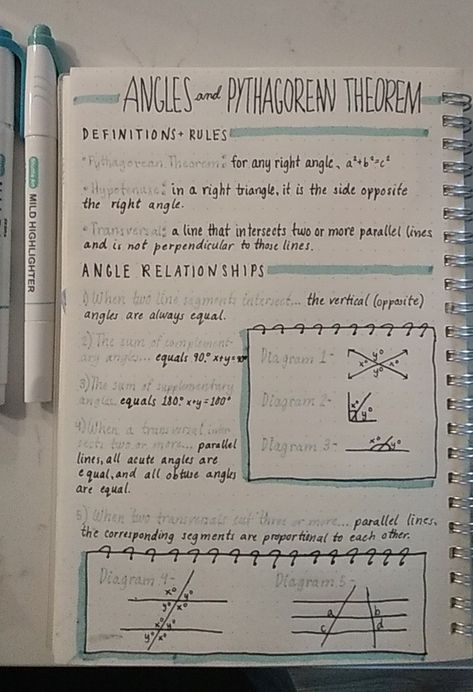 MILD HIGHLIGHTER
ANGLES and PYTHAGOREAN THEOREM
DEFINITIONS + RULES
•Pythagorean Theorem: for any right angle, a²+b²=c²
•Hypotenuse: in a right triangle, it is the side opposite
the right angle.
•Transversal: a line that intersects two or more parallel lines
and is not perpendicular to those lines.
ANGLE RELATIONSHIPS
1) When two line segments intersect... the vertical (opposite)
angles are always equal.
2) The sum of complement-
ary angles... equals 90° x+y=90°
3) The sum of supplementary
angles. equals 180° x+y=100°
4) When a transversal inter
sects two or more... parallel
lines, all acute angles are
equal, and all obtuse angles
are equal.
Diagram 1-
x° y° x° y°
Diagram 2-
x° y°
Diagram 3-
x° y°
5) When two transversals cut three or more... parallel lines,
the corresponding segments are proportional to each other.
Diagram 4-
x° y°
y° x°
x° y°
y° x°
Diagram 5-
a b
c d